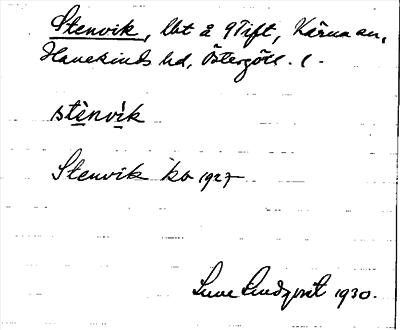 Stenvik, lht å 9 Tift, Kärna sn,
Hanekinds hd, Östergötl. (-
stènvìk
Stenvik ko 1927
Sune Lindqvist 1930.